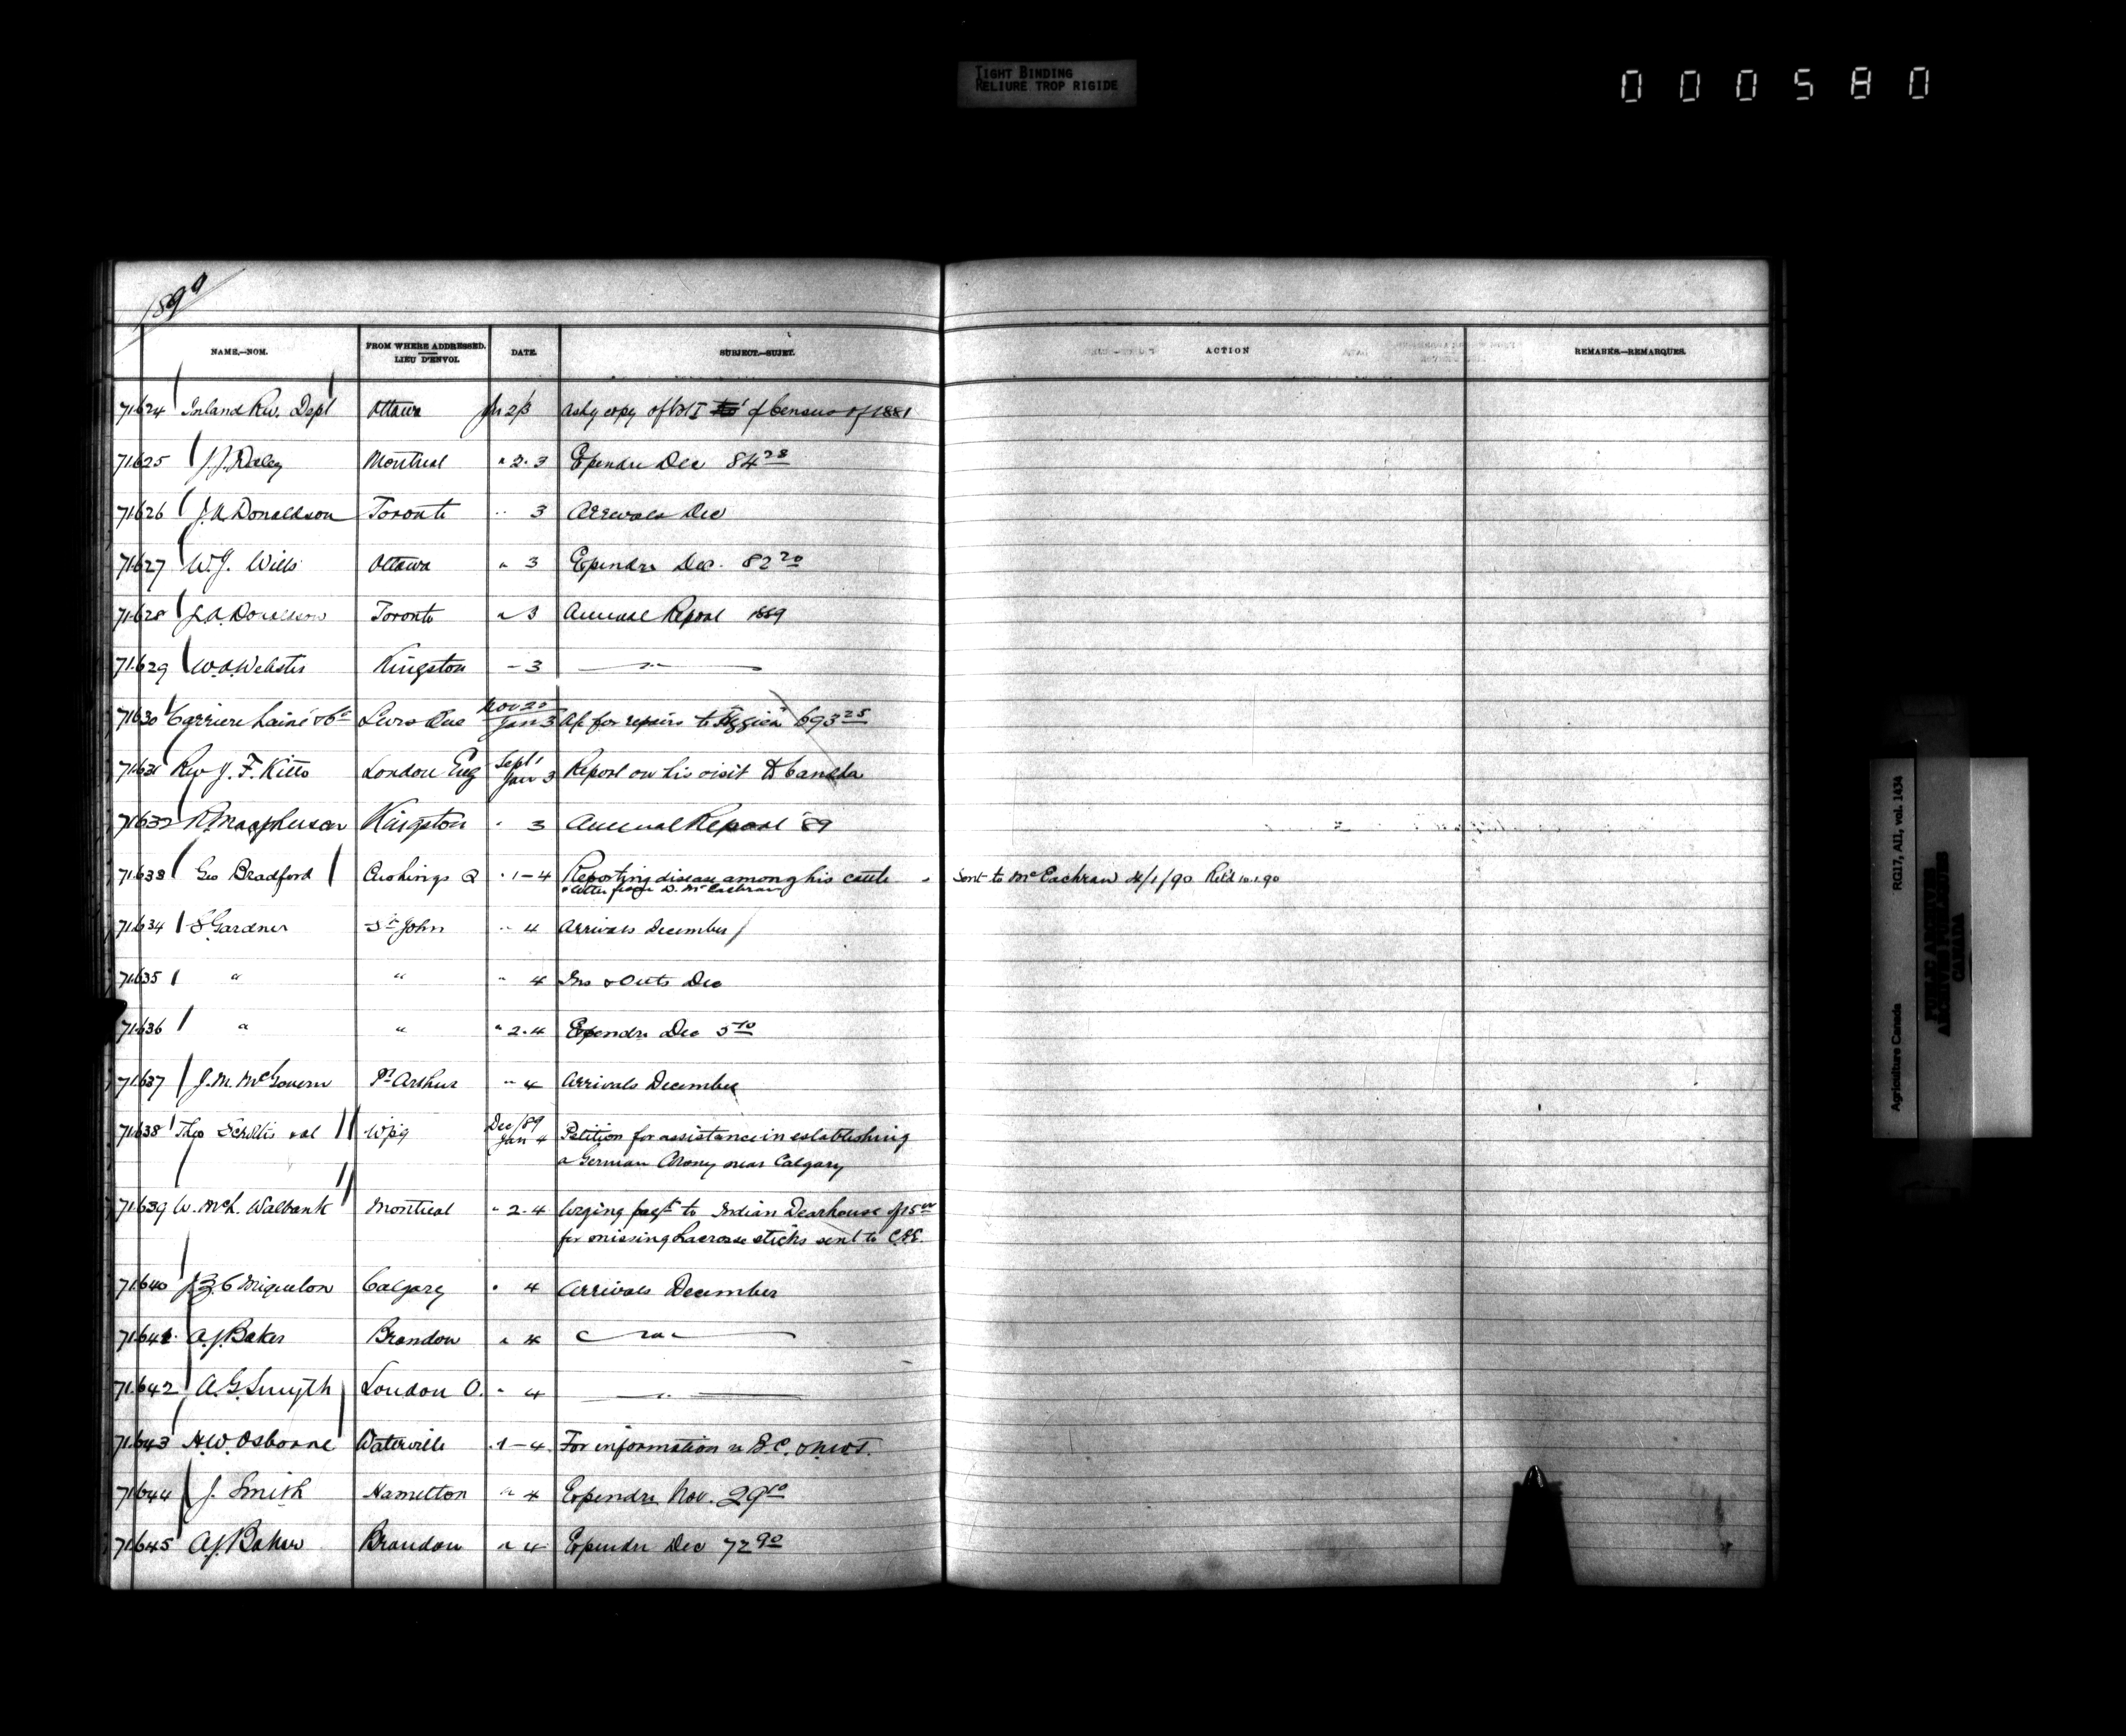 TIGHT BINDING
RELIURE TROP RIGIDE
000580
1890
NAME.—NOM. FROM WHERE ADDRESSED. LIEU D'ENVOI. DATE. SUBJECT.—SUJET. ACTION REMARKS.—REMARQUES.
71.624 Inland Rev. Dept Ottawa Jan 2/3 Ask'g copy of Vol I of Census of 1881
71.625 J.J. Daley Montreal " 2.3 Expendre Dec 84 28
71.626 J.A. Donaldson Toronto " 3 Arrivals Dec
71.627 W.J. Wills Ottawa " 3 Expendre Dec. 82 20
71.628 J.A. Donaldson Toronto " 3 Annual Report 1889
71.629 W.A. Webster Kingston " 3 — " —
71.630 Carriere Lainé & Co Levis Que Nov 20 Jan 3 A/c for repairs to "Hygiea" 693 25
71.631 Rev J. F. Kitto London Eng Sept 1 Jan 3 Report on his visit to Canada
71.632 R. Macpherson Kingston " 3 Annual Report '89
71.633 Geo Bradford Cushings Q " 1-4 Reporting disease among his cattle Sent to McEachran 4/1/90 Ret'd 10.1.90
& letter from D. McEachran
71.634 S Gardner St John " 4 Arrivals December
71.635 " " " 4 Ins & Outs Dec
71.636 " " " 2.4 Expendre Dec 5 10
71.637 J.M. McGovern Pt Arthur " 4 Arrivals December
71.638 Theo &al Wpg Dec/89 Jan 4 Petition for assistance in establishing
a German Colony near Calgary
71.639 W. McL. Walbank Montreal " 2.4 Urging paymt to Indian Dearhouse of 15 00
for missing Lacrosse sticks sent to C.&I.E.
71.640 J.Z.C Miquelon Calgary " 4 Arrivals December
71.641 A.J. Baker Brandon " 4 — " —
71.642 A.G. Smyth London O. " 4 — " —
71.643 H.W. Osborne Waterville " 1-4 For information re B.C. & N.W.T.
71.644 J. Smith Hamilton " 4 Expendre Nov. 29 10
71.645 A.J. Baker Brandon " 4 Expendre Dec 72 90
Agriculture Canada RG17, AII, vol. 1434
PUBLIC ARCHIVES
ARCHIVES PUBLIQUES
CANADA